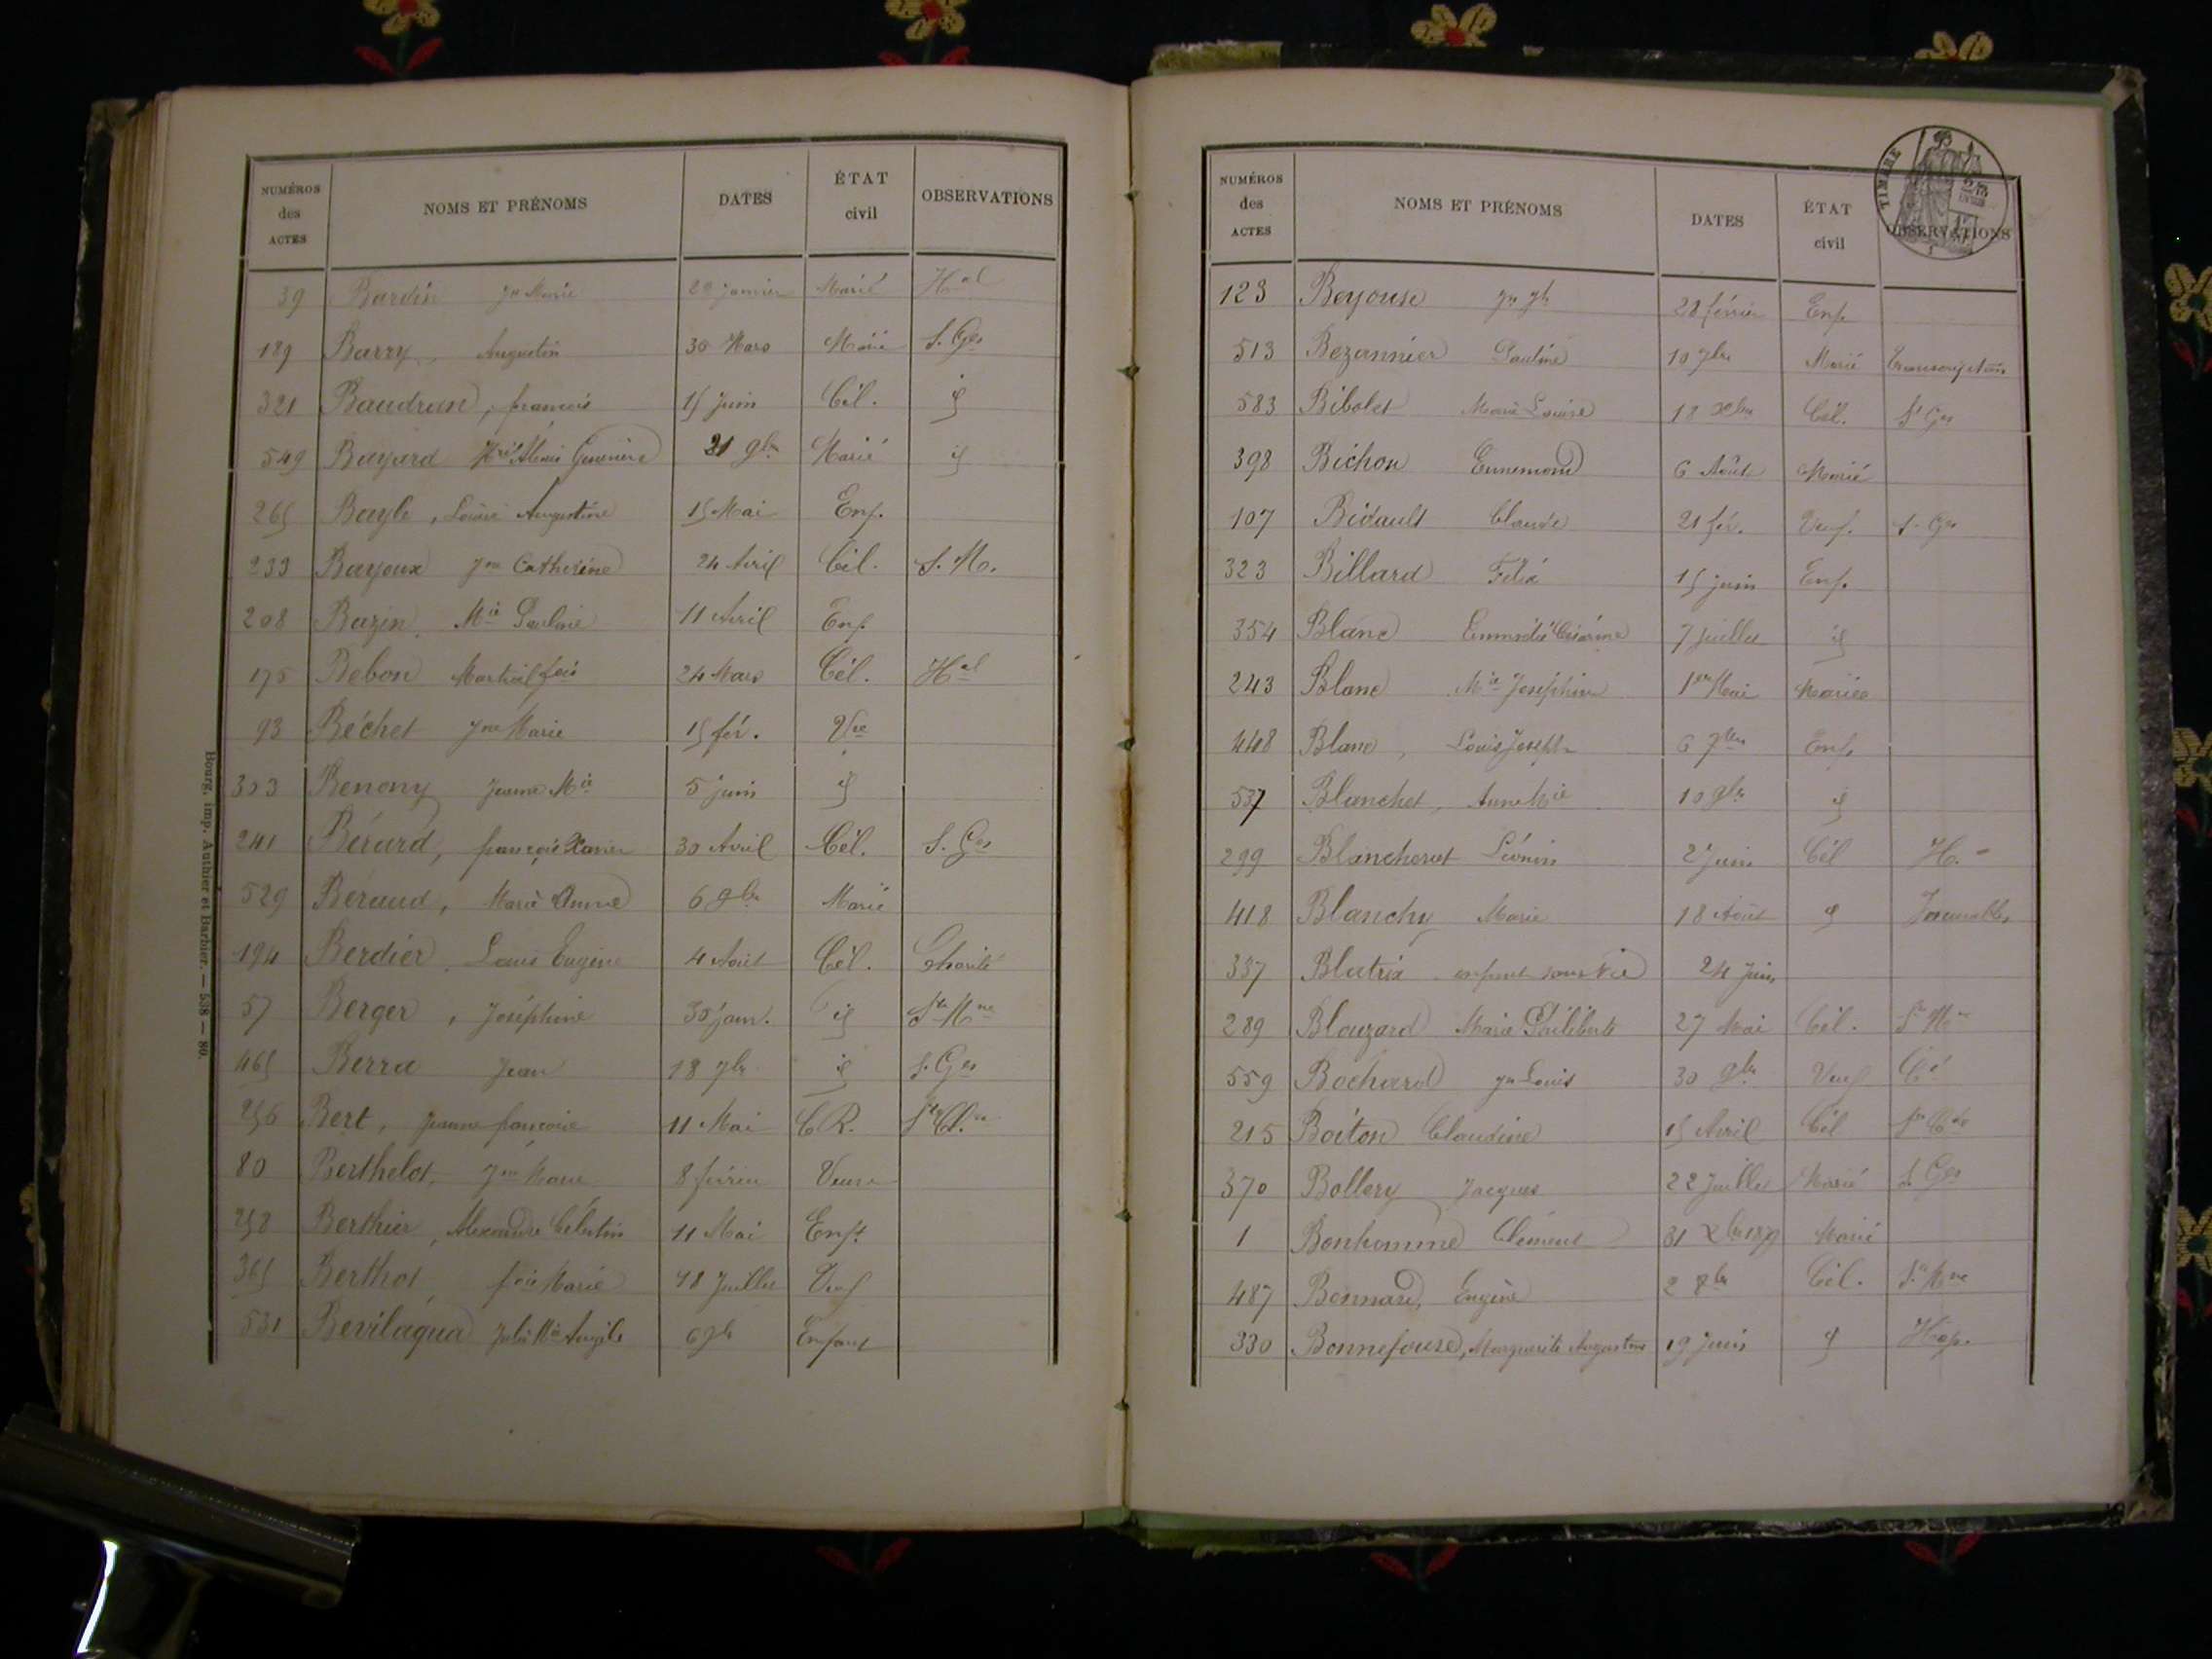 NUMÉROS des ACTES NOMS ET PRÉNOMS DATES ÉTAT civil OBSERVATIONS
39 Bardin Jn Marie 20 janvier Marié Hal
189 Barry, Augustin 30 Mars Marié S. Ges
321 Baudran, francois 15 juin Cél. id
549 Bayard Alexis Geneviève 21 9bre Marié id
265 Bayle, Louise Augustine 15 Mai Enf.
233 Bayoux Jne Catherine 24 Avril Cél. S. M.
208 Bazin Mie 11 Avril Enf.
175 Bebon Martial fois 24 Mars Cél. Hal
93 Béchet Jne Marie 15 fév. Vve
303 Benony Jeanne Mie 5 juin id
241 Bérard, françois Xavier 30 Avril Cél. S. Ges
529 Béraud, Marie Anne 6 9bre Marié
194 Berdier Louis Eugène 4 Août Cél. Charité
57 Berger, Joséphine 30 janv. id Ste Mne
465 Berra Jean 18 7bre id S. Ges
256 Bert, Jeanne françoise 11 Mai C R.
80 Berthelot, Jne Marie 8 février Veuve
258 Berthier, Alexandre Célestin 11 Mai Enft.
365 Berthot fois Marie 18 Juillet Veuf
531 Bevilaqua Julie Mie Angèle 6 9bre Enfant
Bourg, imp. Authier et Barbier. — 538 — 80.
TIMBRE
NUMÉROS des ACTES NOMS ET PRÉNOMS DATES ÉTAT civil OBSERVATIONS
123 Beyouse Jn Jh 28 février Enf.
513 Bezannier Pauline 10 Marié transcription
583 Bibolet Marie Louise 18 Xbre Cél. St Ges
398 Bichon Ennemond 6 Août Marié
107 Bidault Claude 21 fév. Veuf. S. Ges
323 Billard Félix 15 juin Enf.
354 Blanc 7 juillet id
243 Blanc Mie Joséphine 1er Mai Mariée
448 Blanc, Louis Joseph 6 7bre Enf.
537 Blanchet, Anne Mie 10 9bre id
299 Blancheret Léonin 2 juin Cél H.
418 Blanchy Marie 18 Août id Incurables
337 Blatrix enfant sans vie 24 juin
289 Blouzard Marie Philiberte 27 Mai Cél. Ste Mne
559 Bochard Jn Louis 30 9bre Veuf Cé
215 Boiton Claudine 15 Avril Cél
370 Bollery Jacques 22 Juillet Marié S. Ges
1 Bonhomme Clément 31 Xbre 1879 Marié
487 Bonnard, Eugène 2 8bre Cél. Ste Mne
330 Bonnefouse, Marguerite Augustine 19 Juin id Hop.